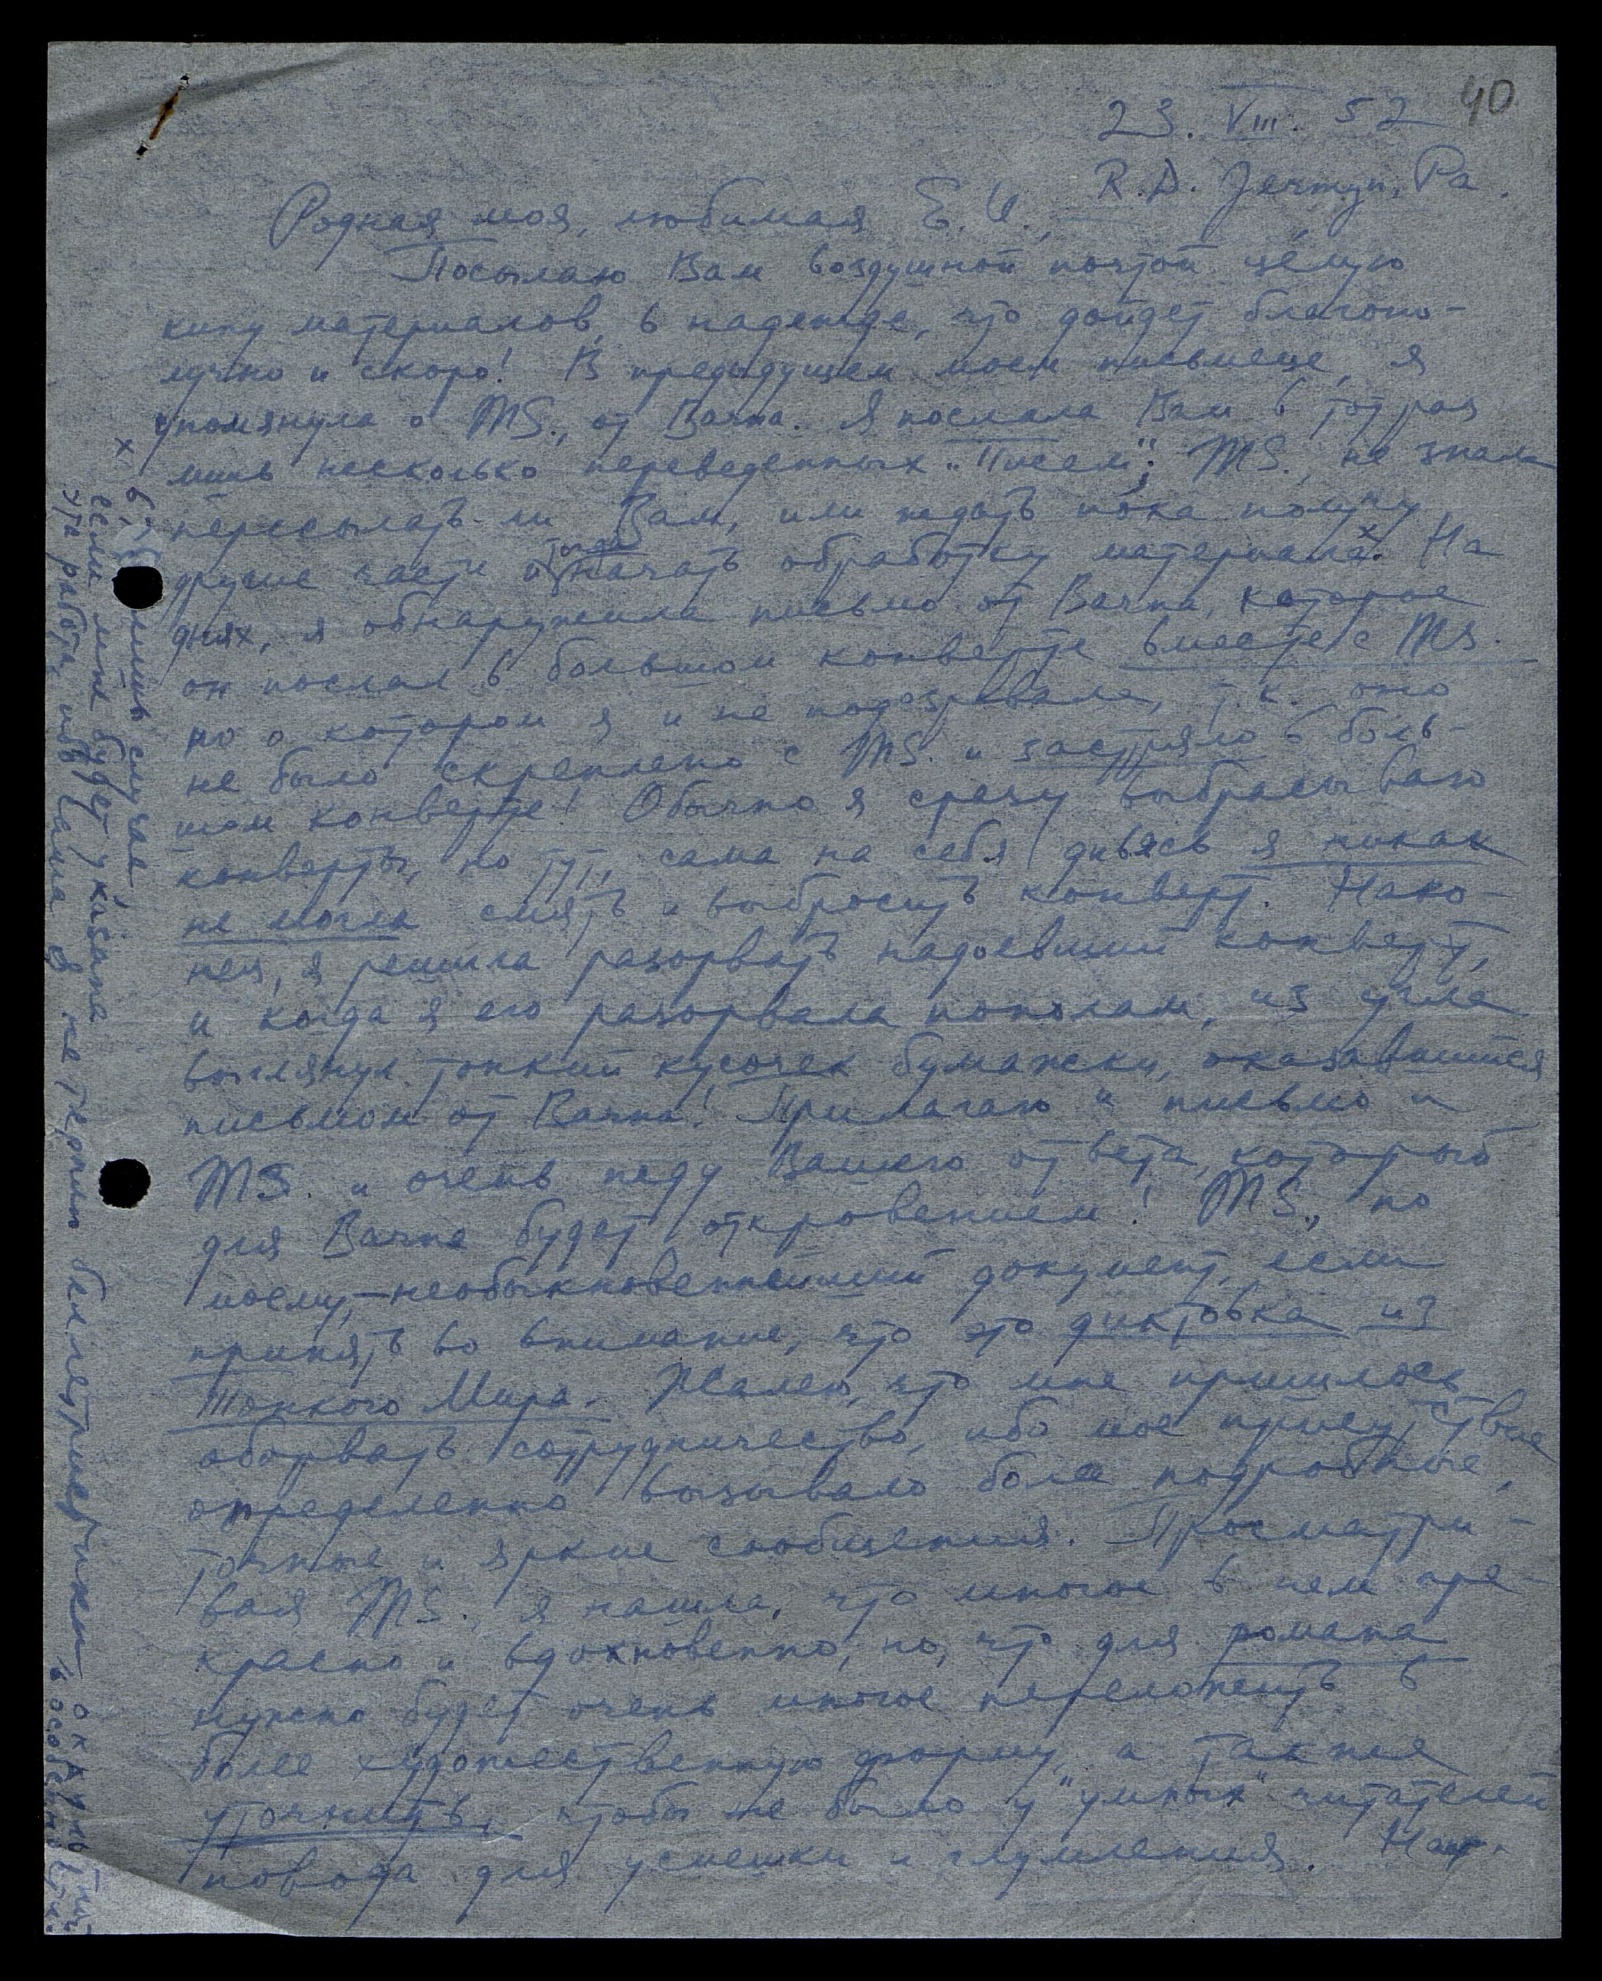 40
23. VIII. 52
R.D. Jermyn, Pa.
Родная моя, любимая Е. И.,
Посылаю Вам воздушной почтой целую
кипу материалов, в надежде, что дойдет благопо-
лучно и скоро! В предыдущем моем письмеце, я
упомянула о MS., от Вачна. Я послала Вам в тот раз
лишь несколько переведенных "Писем"; MS., не знала
пересылать-ли Вам, или ждать пока получу
другие части и тогда начать обработку материала.х На
днях, я обнаружила письмо от Вачна, которое
он послал в большом конверте вместе с MS.
но о котором я и не подозревала, т.к. оно
не было скреплено с MS. и застряло в боль-
шом конверте! Обычно я сразу выбрасываю
конверты, но тут, сама на себя дивясь я никак
не могла смять и выбросить конверт. Нако-
нец, я решила разорвать надоевший конверт,
и когда я его разорвала пополам, из угла
выглянул тонкий кусочек бумажки, оказавшийся
письмом от Вачна! Прилагаю и письмо и
MS. и очень жду Вашего ответа, который
для Вачна будет откровением! MS., по
моему,—необыкновеннейший документ, если
принять во внимание, что это диктовка из
Тонкого Мира. Жалею, что мне пришлось
оборвать сотрудничество, ибо мое присутствие
определенно вызывало более подробные,
точные и яркие сообщения. Просматри-
вая MS., я нашла, что многое в нем пре-
красно и вдохновенно, но, что для романа
нужно будет очень многое переложить в
более художественную форму, а также
уточнить, чтобы не было у "умных" читателей
повода для усмешки и глумления. Напр.
х
лишь случая
если мне будет указана
эта работа, ибо сама я не терплю беллетристики
в особенности